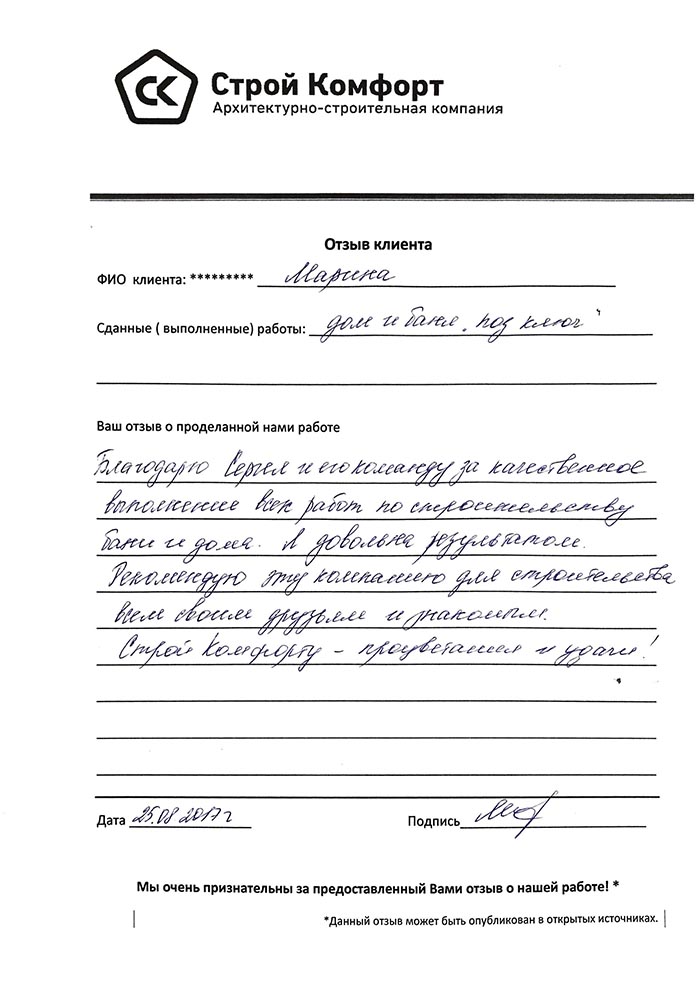 СК
Строй Комфорт
Архитектурно-строительная компания
Отзыв клиента
ФИО клиента: ********* Марина
Сданные ( выполненные) работы: дом и баня „под ключ“
Ваш отзыв о проделанной нами работе
Благодарю Сергея и его команду за качественное
выполнение всех работ по строительству
бани и дома. Я довольна результатом.
Рекомендую эту компанию для строительства
всем своим друзьям и знакомым.
Строй Комфорту – процветания и удачи!
Дата 25.08 2017 г Подпись
Мы очень признательны за предоставленный Вами отзыв о нашей работе! *
*Данный отзыв может быть опубликован в открытых источниках.